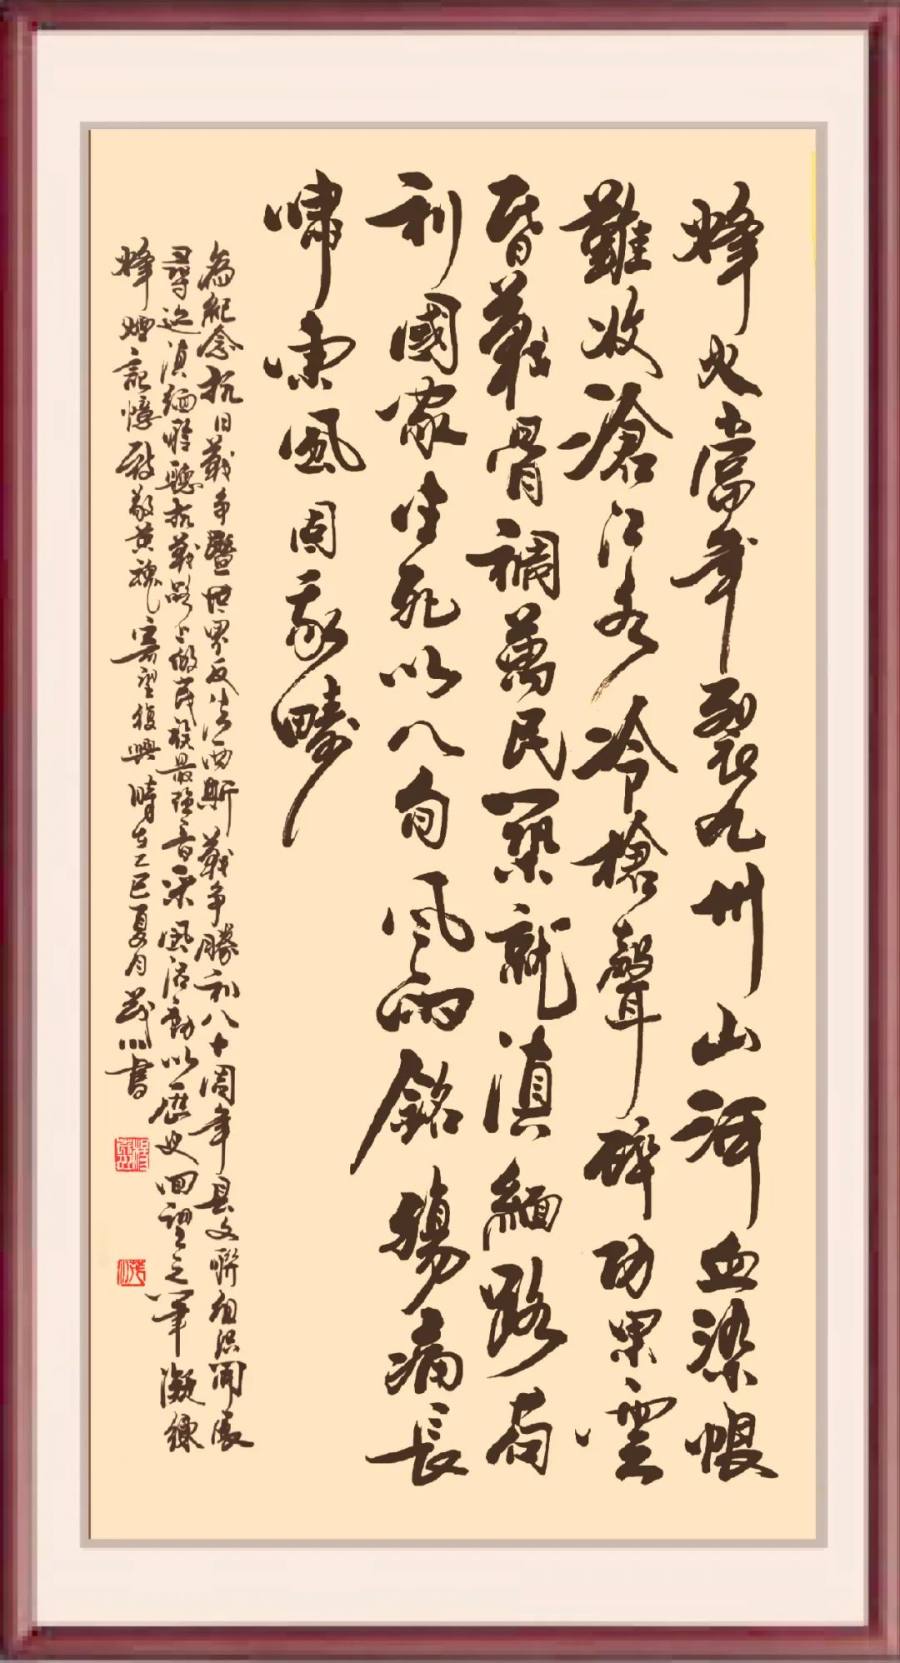 烽火當年裂九州山河血染恨
難收滄江水冷槍聲碎功果雲
昏戰骨稠萬民築就滇緬路苟
利國家生死以八旬風雨銘殤痛長
嘯東風固我疇
為紀念抗日戰争暨世界反法西斯戰争勝利八十周年县文聯組織開展
尋迹滇緬聆聽抗戰路上的民族最強音采風活動以歷史回望之筆凝練
烽煙記憶致敬英魂寄望復興時在乙巳夏月書